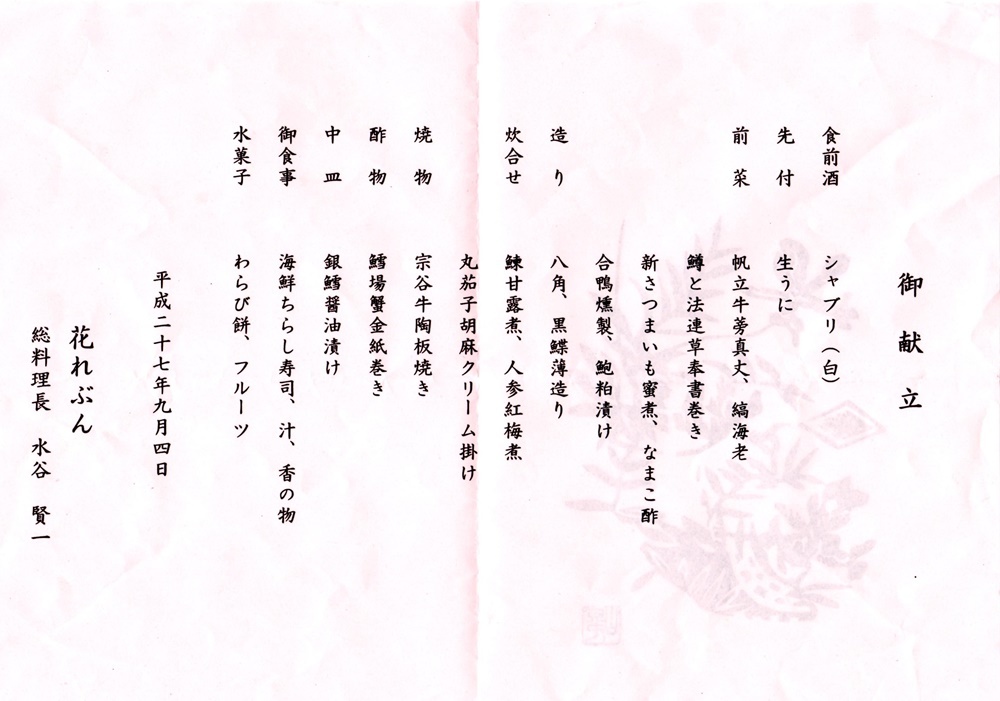 御献立
食前酒　シャブリ（白）
先付　生うに
前菜　帆立牛蒡真丈、縞海老
鱒と法連草奉書巻き
新さつまいも蜜煮、なまこ酢
合鴨燻製、鮑粕漬け
造り　八角、黒鰈薄造り
炊合せ　鰊甘露煮、人参紅梅煮
丸茄子胡麻クリーム掛け
焼物　宗谷牛陶板焼き
酢物　鱈場蟹金紙巻き
中皿　銀鱈醤油漬け
御食事　海鮮ちらし寿司、汁、香の物
水菓子　わらび餅、フルーツ
平成二十七年九月四日
花れぶん
総料理長　水谷　賢一